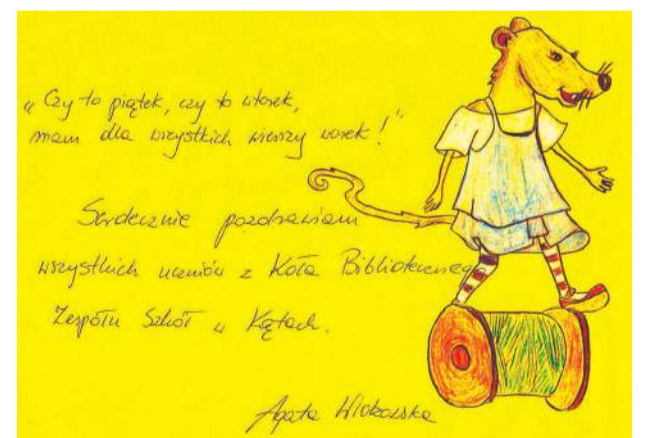 „Czy to piątek, czy to wtorek,
mam dla wszystkich wierszy worek!"
Serdecznie pozdrawiam
wszystkich uczniów z Koła Bibliotecznego
Zespółu Szkół w Kątach.
Agata Widzowska